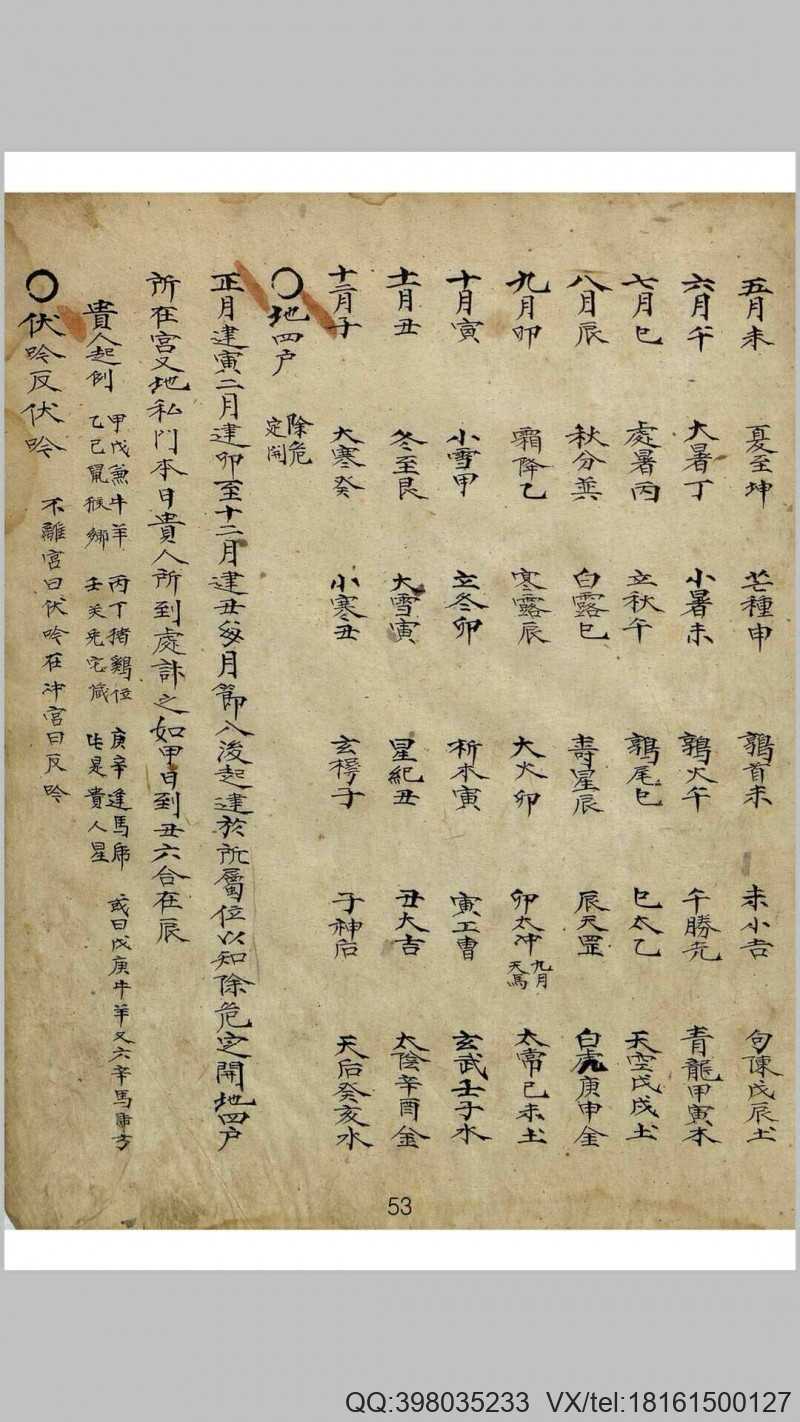 五月未 夏至坤 芒種申 鶉首未 未小吉 句陳戊辰土
六月午 大暑丁 小暑未 鶉火午 午勝光 青龍甲寅木
七月巳 處暑丙 立秋午 鶉尾巳 巳太乙 天空戊戌土
八月辰 秋分巽 白露巳 壽星辰 辰天罡 白虎庚申金
九月卯 霜降乙 寒露辰 大火卯 卯太冲 九月天馬 太常己未土
十月寅 小雪甲 立冬卯 析木寅 寅工曹 玄武壬子水
十一月丑 冬至艮 大雪寅 星紀丑 丑大吉 太陰辛酉金
十二月子 大寒癸 小寒丑 玄枵子 子神后 天后癸亥水
〇地四户 除危定開
正月建寅二月建卯至十二月建丑每月節入後起建於所屬位以知除危定開地四户
所在宫又地私門本日貴人所到處訣之如甲日到丑六合在辰
貴人起例 甲戊兼牛羊 乙己鼠猴鄉 丙丁猪鷄位 壬癸兔宅藏 庚辛逢馬虎 此是貴人星 或曰戊庚牛羊又六辛馬虎方
〇伏吟反伏吟 不離宫曰伏吟在冲宫曰反吟
53
QQ:398035233 VX/tel:18161500127